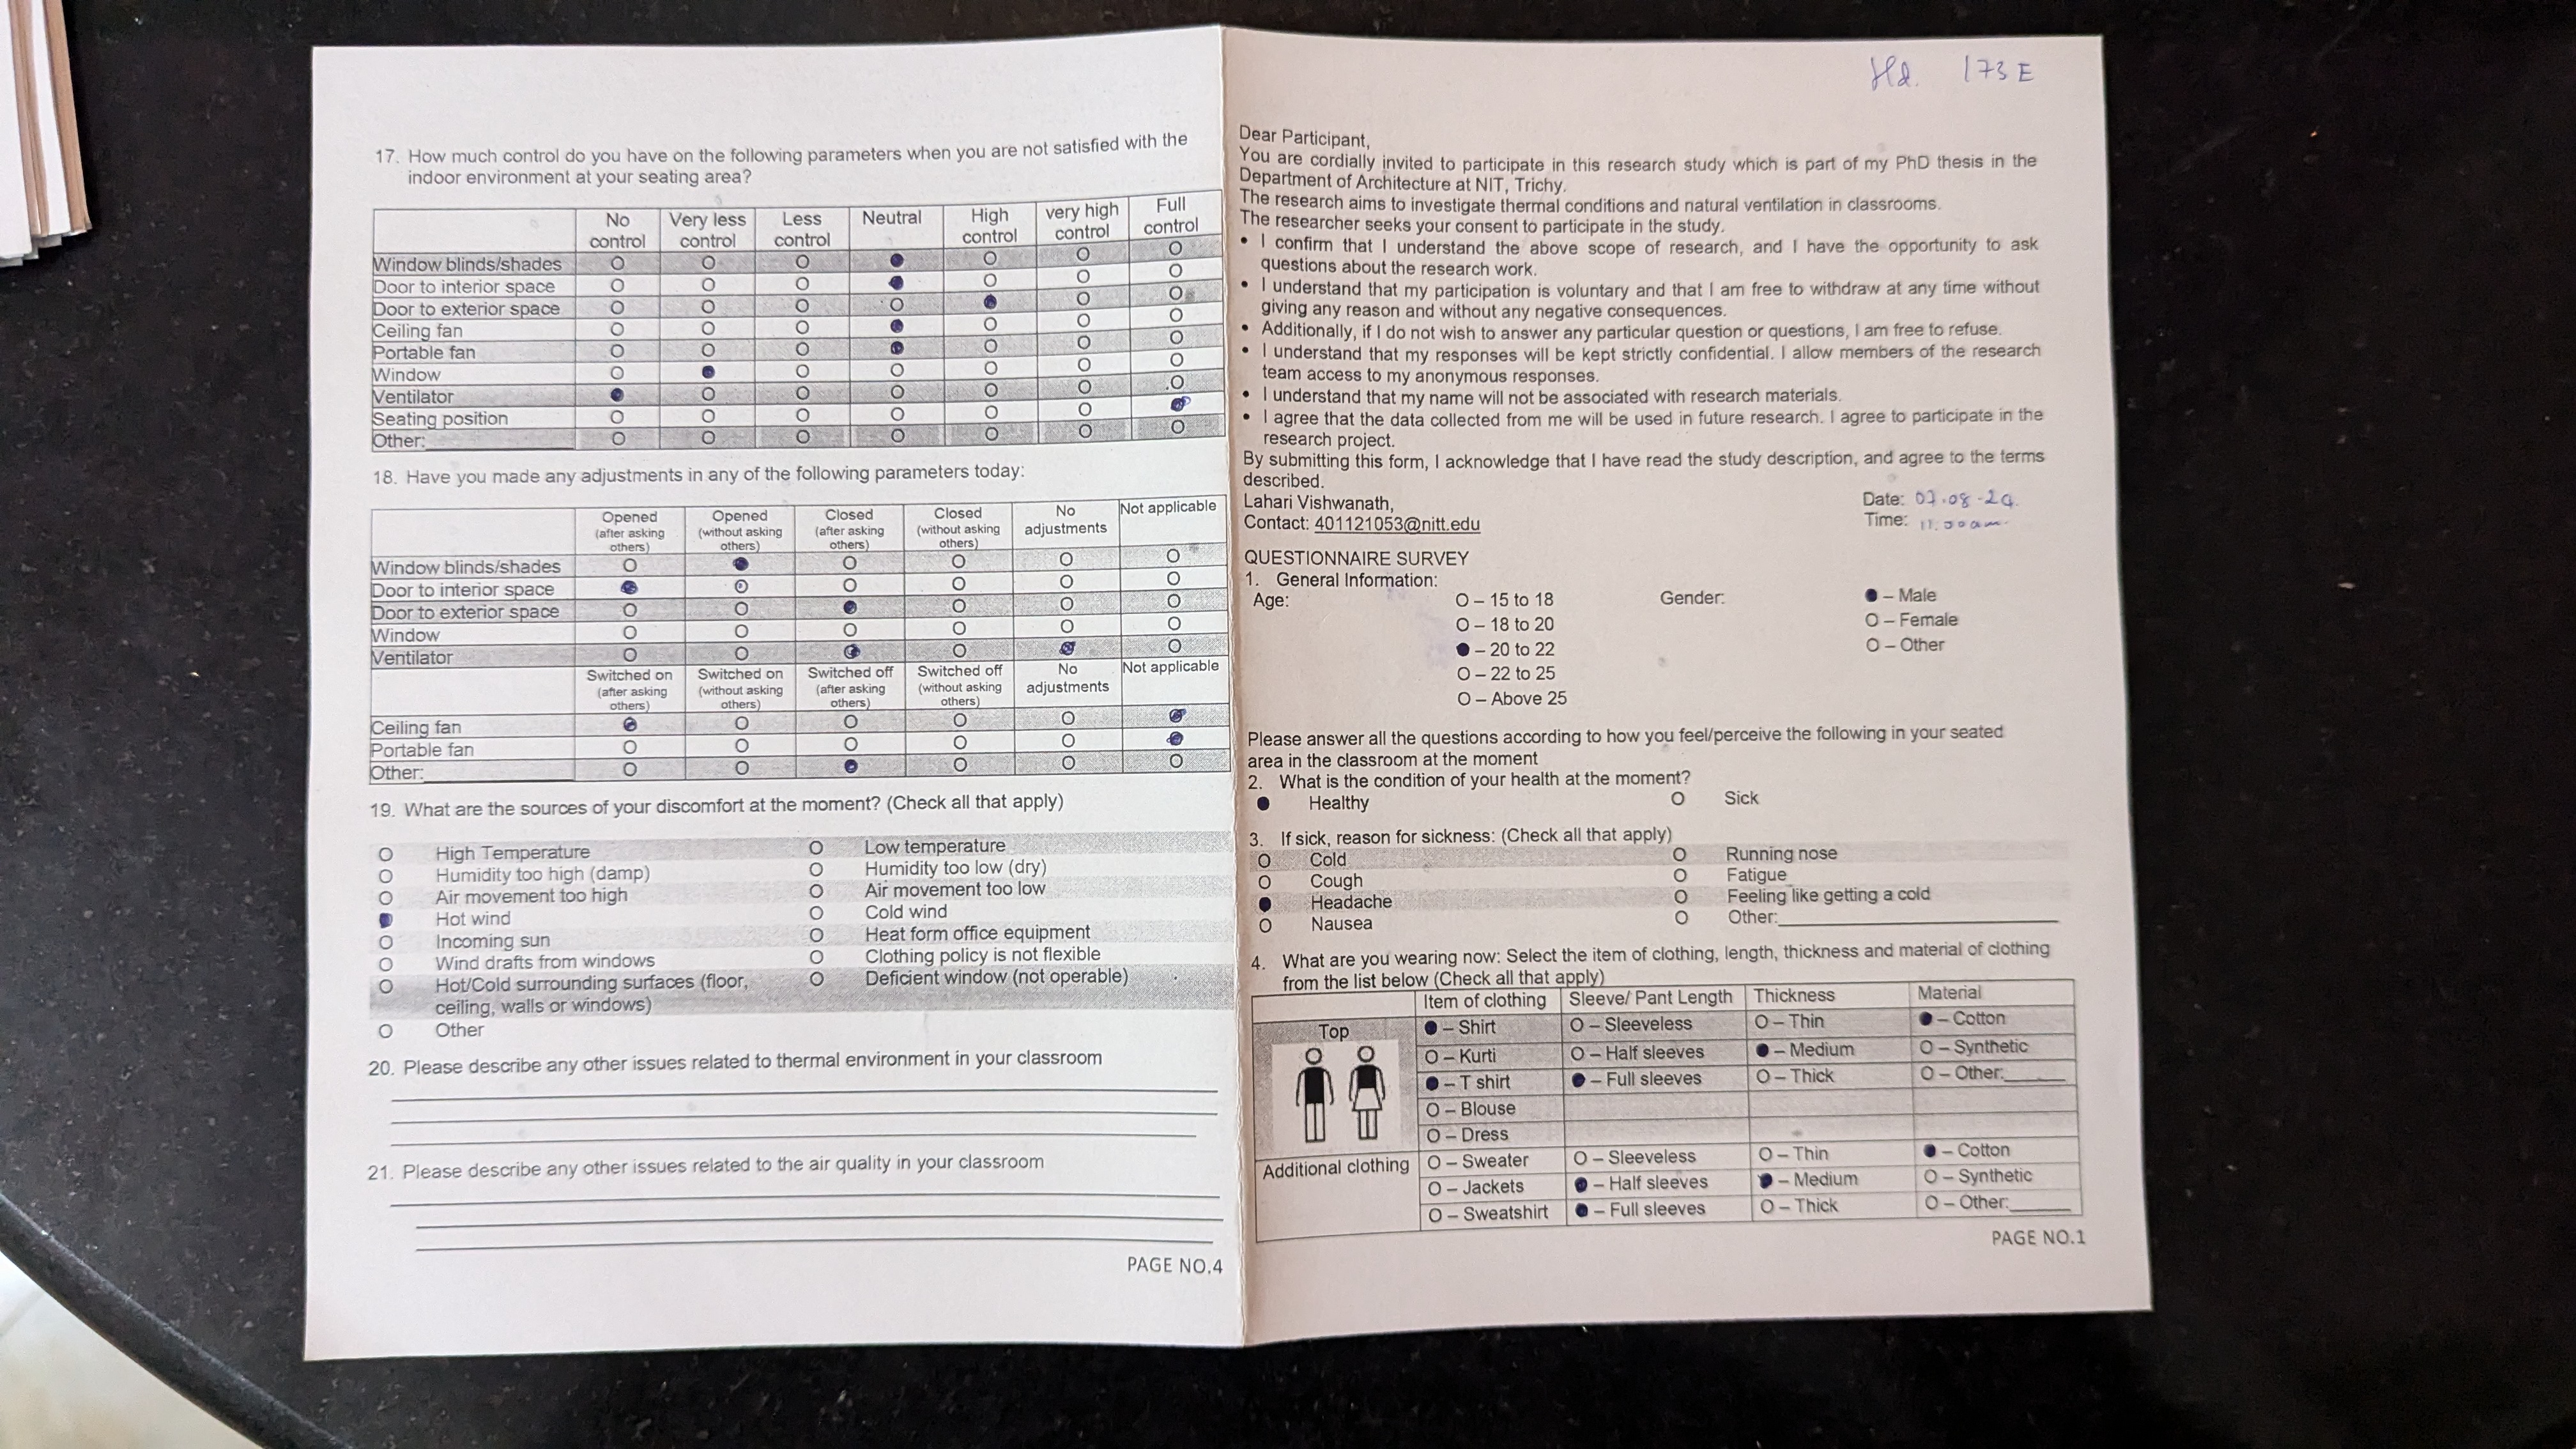 17. How much control do you have on the following parameters when you are not satisfied with the
indoor environment at your seating area?
No control Very less control Less control Neutral High control very high control Full control
Window blinds/shades O O O ● O O O
Door to interior space O O O ● O O O
Door to exterior space O O O O ● O O
Ceiling fan O O O ● O O O
Portable fan O O O ● O O O
Window O ● O O O O O
Ventilator ● O O O O O O
Seating position O O O O O O ●
Other:________ O O O O O O O
18. Have you made any adjustments in any of the following parameters today:
Opened (after asking others) Opened (without asking others) Closed (after asking others) Closed (without asking others) No adjustments Not applicable
Window blinds/shades O ● O O O O
Door to interior space ● O O O O O
Door to exterior space O O ● O O O
Window O O O O O O
Ventilator O O ● O ● O
Switched on (after asking others) Switched on (without asking others) Switched off (after asking others) Switched off (without asking others) No adjustments Not applicable
Ceiling fan ● O O O O ●
Portable fan O O O O O ●
Other:________ O O ● O O O
19. What are the sources of your discomfort at the moment? (Check all that apply)
O High Temperature O Low temperature
O Humidity too high (damp) O Humidity too low (dry)
O Air movement too high O Air movement too low
● Hot wind O Cold wind
O Incoming sun O Heat form office equipment
O Wind drafts from windows O Clothing policy is not flexible
O Hot/Cold surrounding surfaces (floor, O Deficient window (not operable)
ceiling, walls or windows)
O Other
20. Please describe any other issues related to thermal environment in your classroom
21. Please describe any other issues related to the air quality in your classroom
PAGE NO.4
173 E
Dear Participant,
You are cordially invited to participate in this research study which is part of my PhD thesis in the
Department of Architecture at NIT, Trichy.
The research aims to investigate thermal conditions and natural ventilation in classrooms.
The researcher seeks your consent to participate in the study.
• I confirm that I understand the above scope of research, and I have the opportunity to ask
questions about the research work.
• I understand that my participation is voluntary and that I am free to withdraw at any time without
giving any reason and without any negative consequences.
• Additionally, if I do not wish to answer any particular question or questions, I am free to refuse.
• I understand that my responses will be kept strictly confidential. I allow members of the research
team access to my anonymous responses.
• I understand that my name will not be associated with research materials.
• I agree that the data collected from me will be used in future research. I agree to participate in the
research project.
By submitting this form, I acknowledge that I have read the study description, and agree to the terms
described.
Lahari Vishwanath, Date:
Contact: 401121053@nitt.edu Time:
QUESTIONNAIRE SURVEY
1. General Information:
Age: O – 15 to 18 Gender: ● – Male
O – 18 to 20 O – Female
● – 20 to 22 O – Other
O – 22 to 25
O – Above 25
Please answer all the questions according to how you feel/perceive the following in your seated
area in the classroom at the moment
2. What is the condition of your health at the moment?
● Healthy O Sick
3. If sick, reason for sickness: (Check all that apply)
O Cold O Running nose
O Cough O Fatigue
● Headache O Feeling like getting a cold
O Nausea O Other:________
4. What are you wearing now: Select the item of clothing, length, thickness and material of clothing
from the list below (Check all that apply)
Item of clothing Sleeve/ Pant Length Thickness Material
Top ● – Shirt O – Sleeveless O – Thin ● – Cotton
O – Kurti O – Half sleeves ● – Medium O – Synthetic
● – T shirt ● – Full sleeves O – Thick O – Other:______
O – Blouse
O – Dress
Additional clothing O – Sweater O – Sleeveless O – Thin ● – Cotton
O – Jackets ● – Half sleeves ● – Medium O – Synthetic
O – Sweatshirt ● – Full sleeves O – Thick O – Other:______
PAGE NO.1